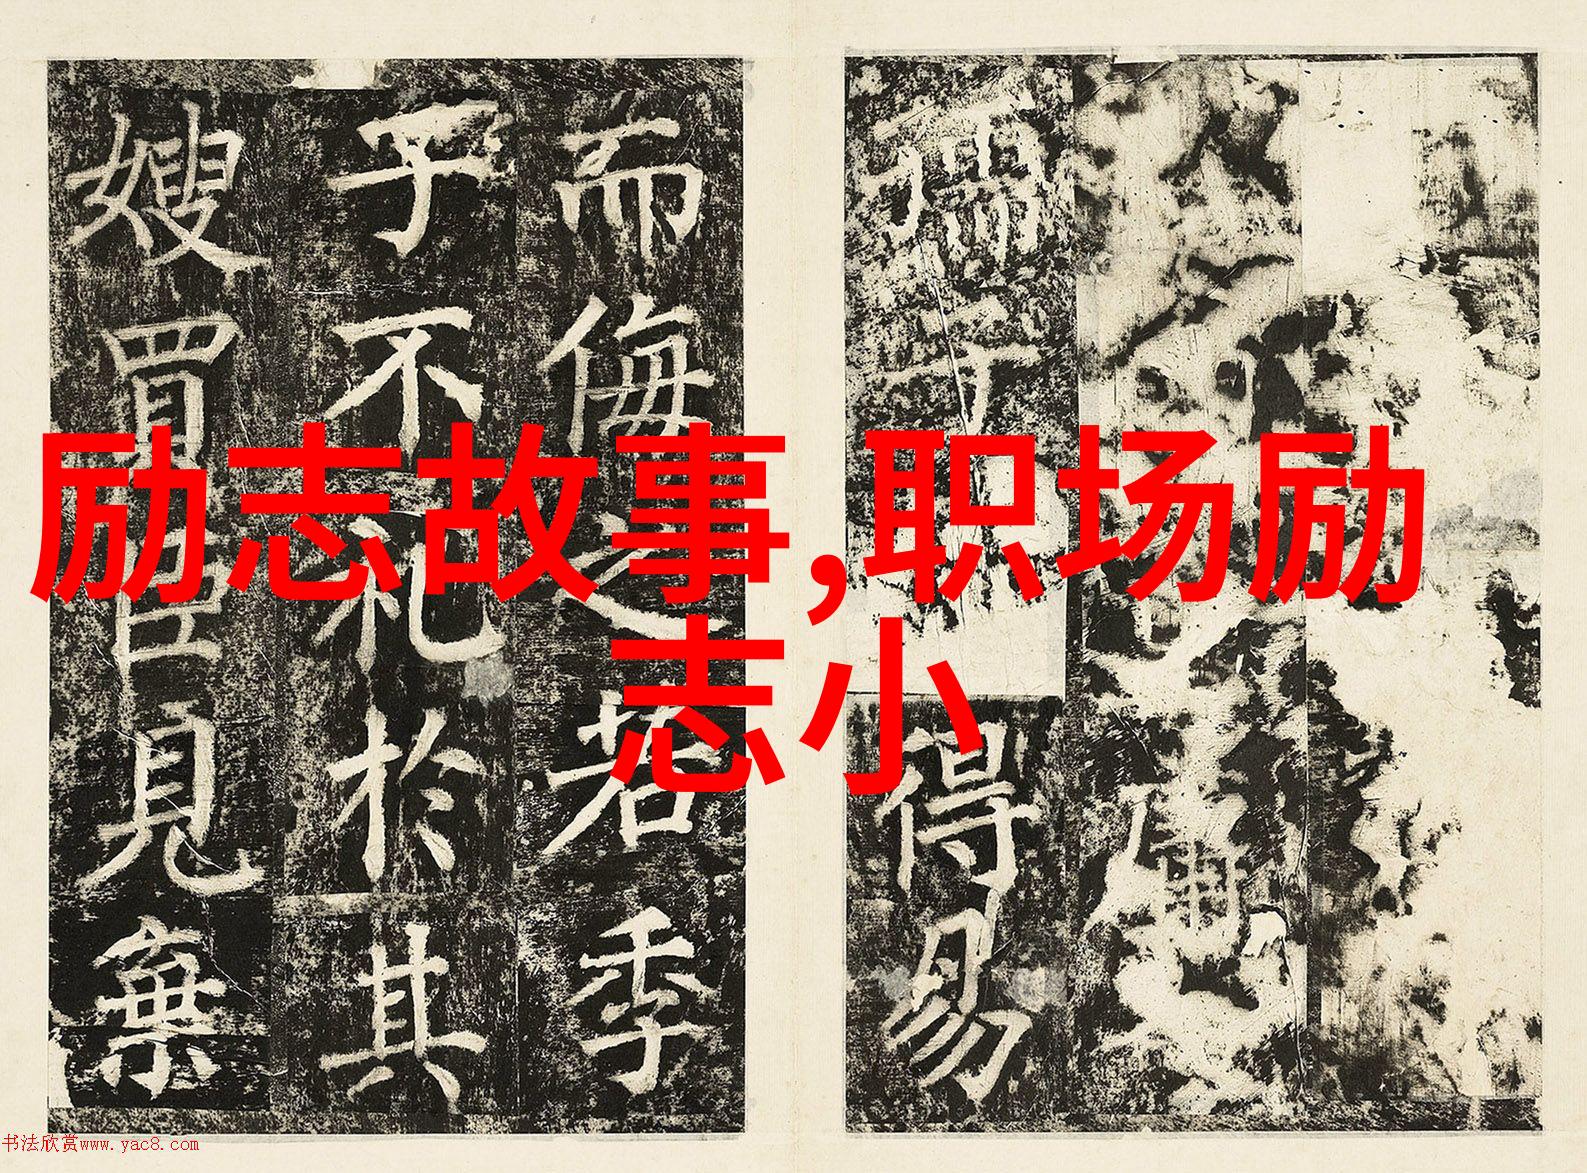 励志故事,职场励
志小
而侮之若季
子不礼於其
嫂買臣見棄
得易
書法欣赏www.yac8.com